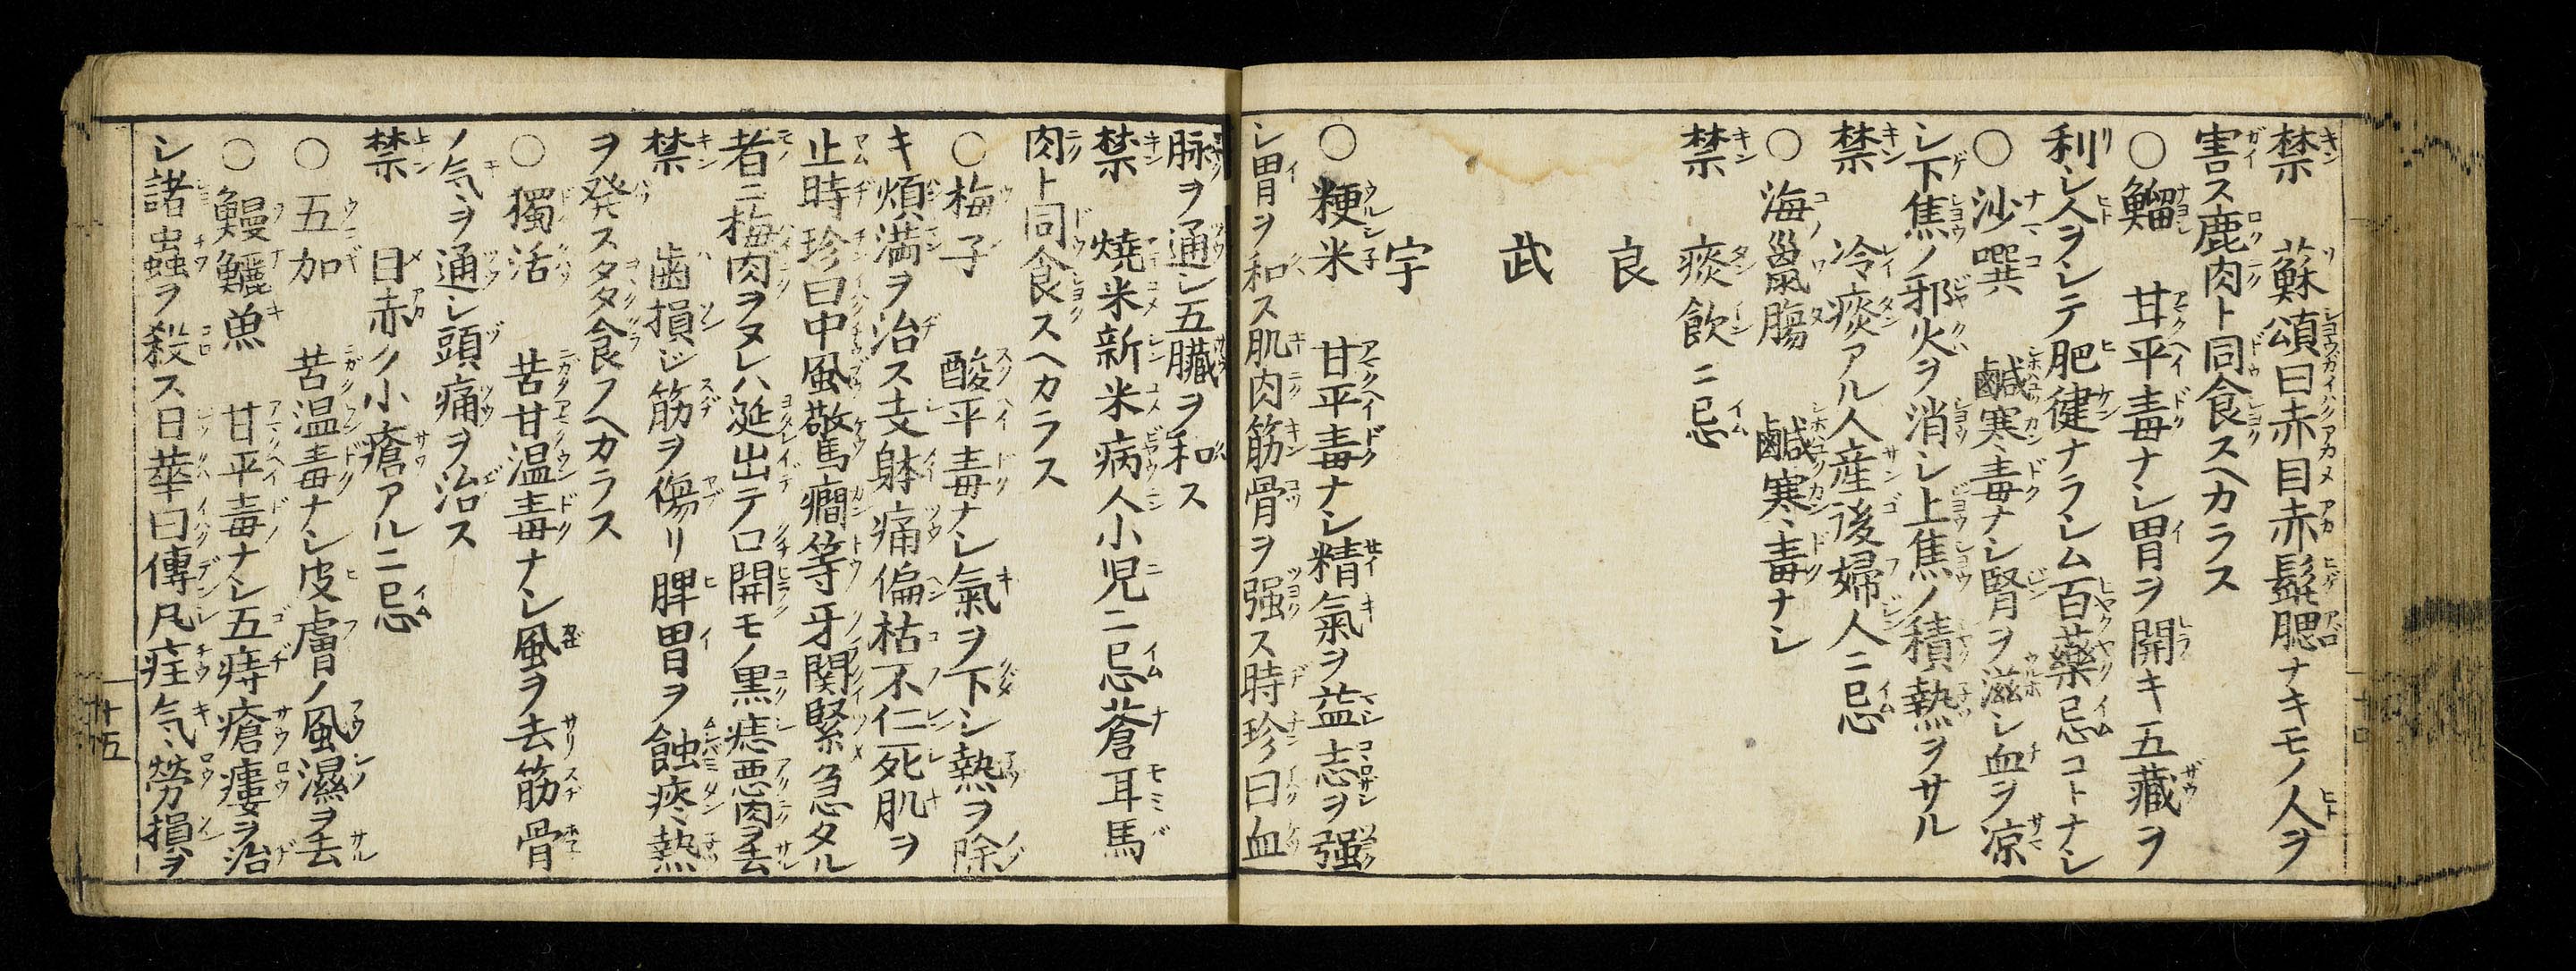 禁 蘇頌曰赤目赤鬚腮ナキモノ人ヲ
害ス鹿肉ト同食スヘカラス
○鰡 甘平毒ナシ胃ヲ開キ五藏ヲ
利シ人ヲシテ肥健ナラシム百藥忌コトナシ
○沙噀 鹹寒毒ナシ腎ヲ滋シ血ヲ凉
シ下焦ノ邪火ヲ消シ上焦ノ積熱ヲサル
禁 冷痰アル人産後婦人ニ忌
○海鼠腸 鹹寒毒ナシ
禁 痰飲ニ忌
良
武
宇
○粳米 甘平毒ナシ精氣ヲ益志ヲ强
シ胃ヲ和ス肌肉筋骨ヲ强ス時珍曰血
脉ヲ通シ五臟ヲ和ス
禁 燒米新米病人小児ニ忌蒼耳馬
肉ト同食スヘカラス
○梅子 酸平毒ナシ氣ヲ下シ熱ヲ除
キ煩満ヲ治ス支躰痛偏枯不仁死肌ヲ
止時珍曰中風驚癇等牙関緊急タル
者ニ梅肉ヲヌレハ涎出テ口開モノ黒痣悪肉ヲ去
禁 歯損シ筋ヲ傷リ脾胃ヲ蝕痰熱
ヲ発スタタ食フヘカラス
○獨活 苦甘温毒ナシ風ヲ去筋骨
ノ気ヲ通シ頭痛ヲ治ス
禁 目赤ク小瘡アルニ忌
○五加 苦温毒ナシ皮膚ノ風濕ヲ去
○鰻鱺魚 甘平毒ナシ五痔瘡瘻ヲ治
シ諸蟲ヲ殺ス日華曰傳尸疰気勞損ヲ
十五